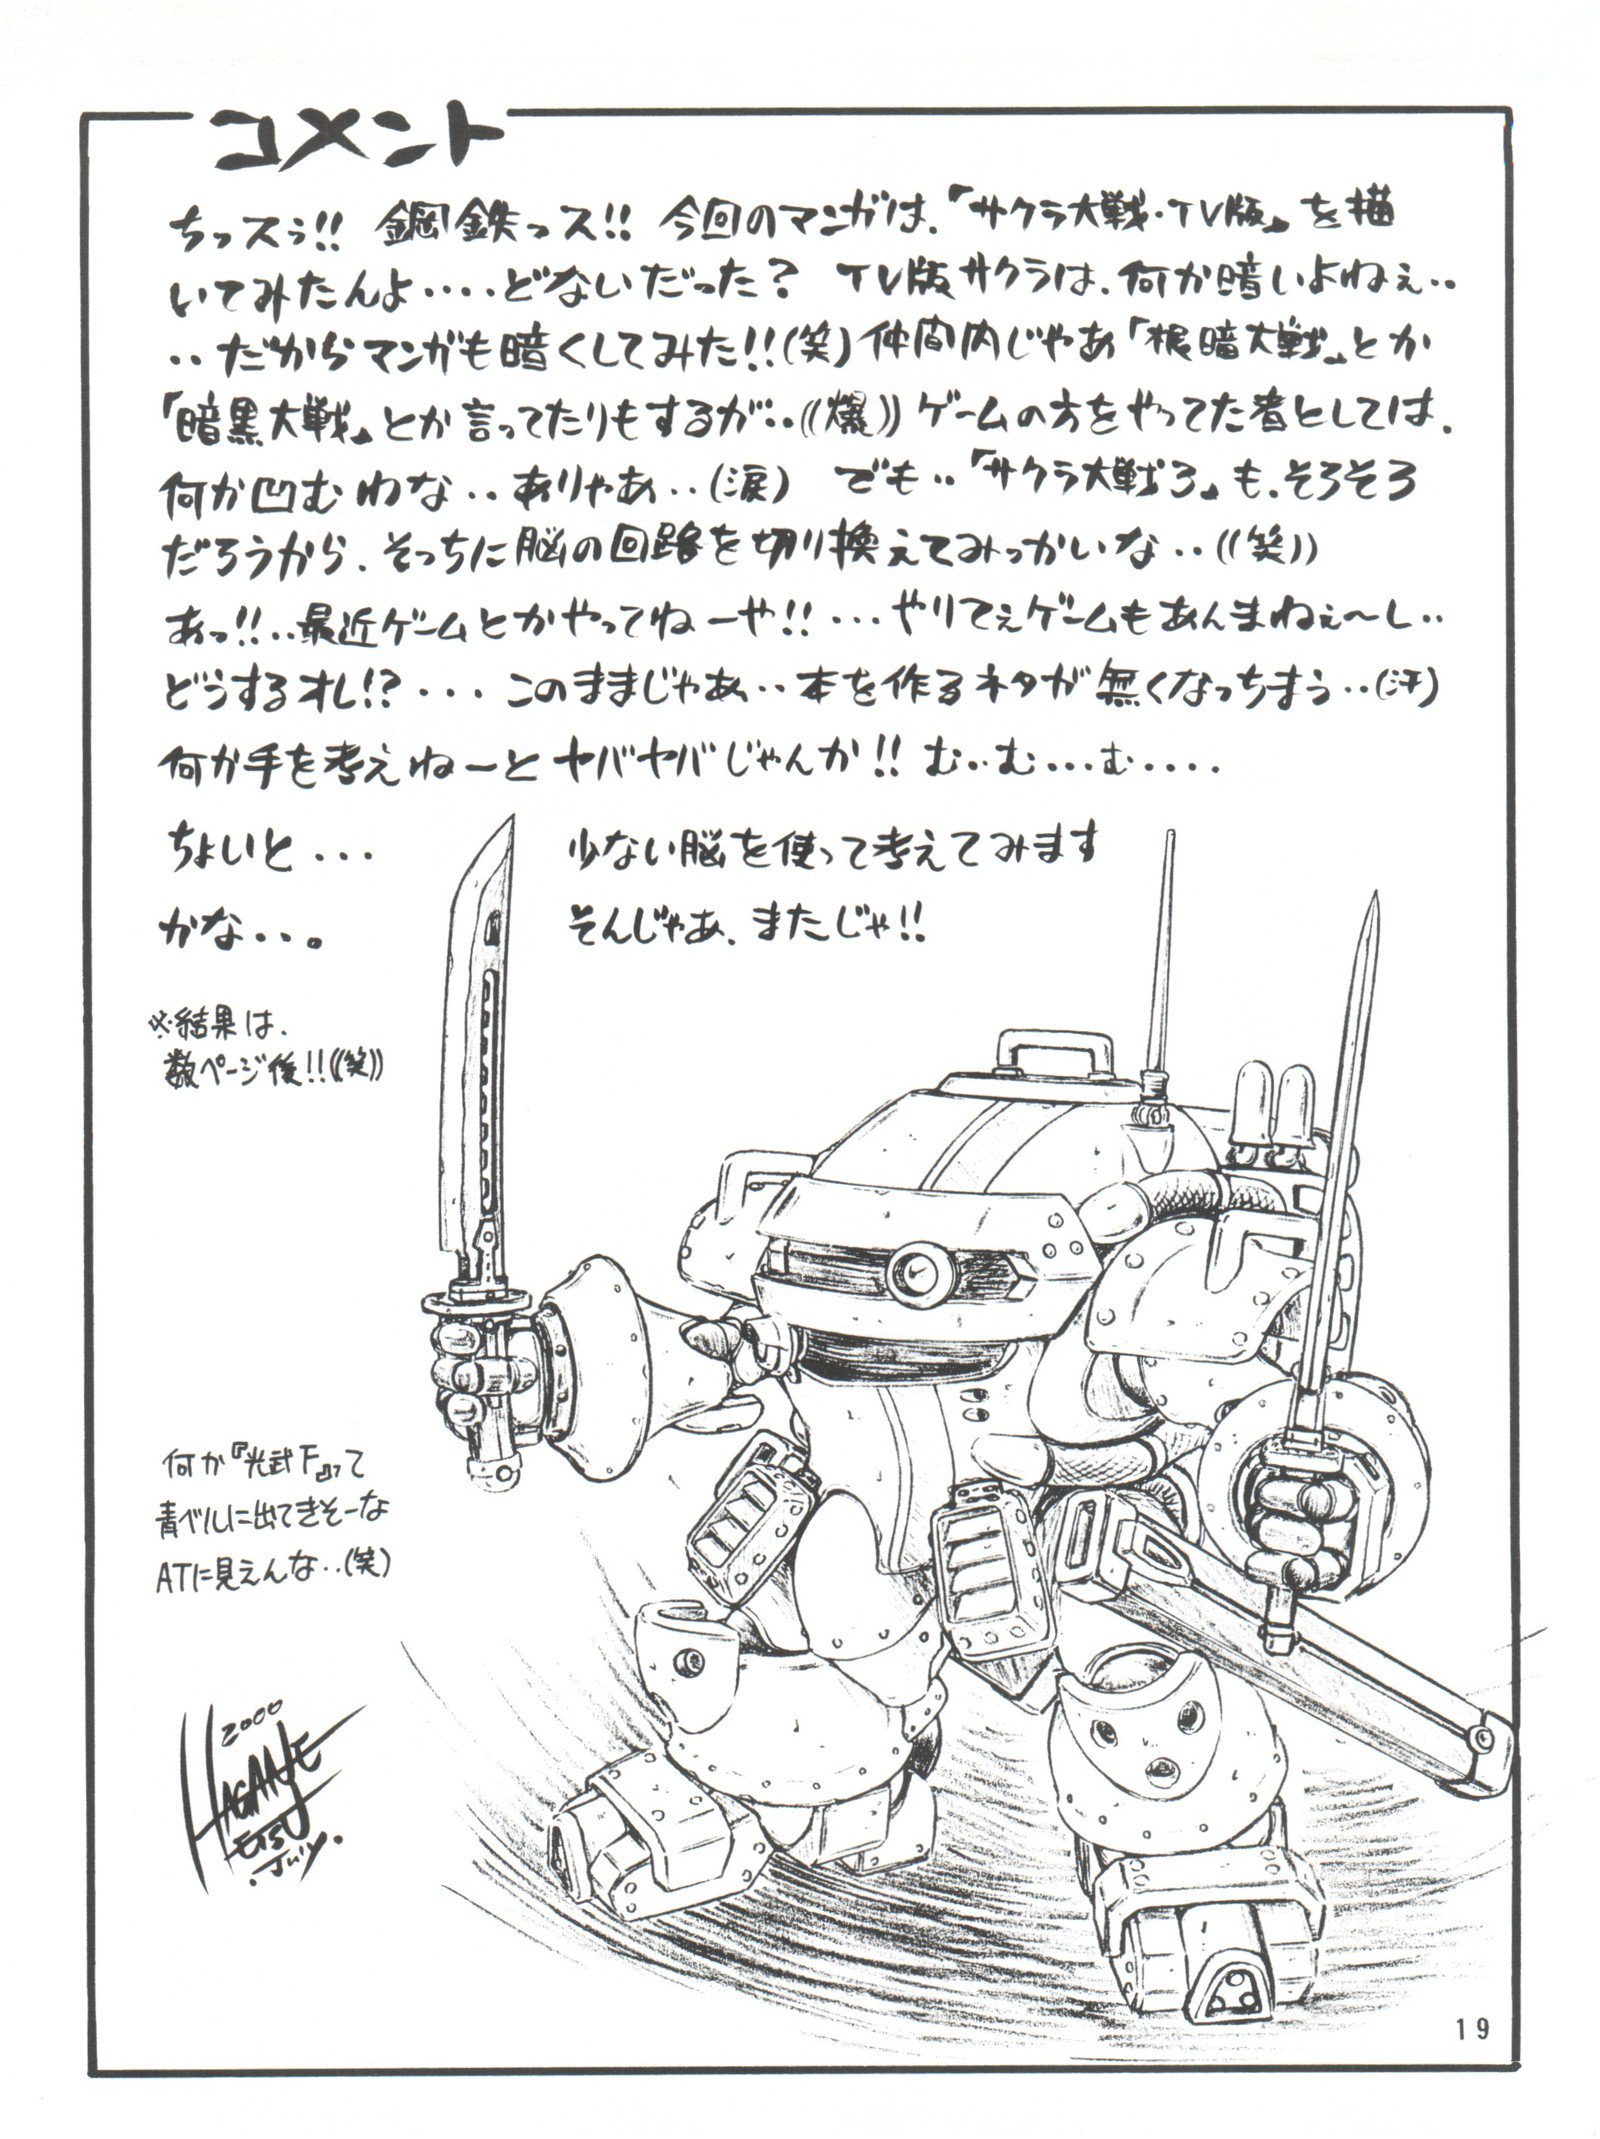 コメント
ちっスぅ!! 鋼鉄っス!! 今回のマンガは、『サクラ大戦・TV版』を描
いてみたんよ・・・・どないだった? TV版サクラは、何か暗いよねぇ・・
・・だからマンガも暗くしてみた!!(笑)仲間内じゃあ「根暗大戦」とか
『暗黒大戦』とか言ってたりもするが・・((爆)) ゲームの方をやってた者としては、
何か凹むわな・・ありゃあ・・(涙) でも・・『サクラ大戦3』も、そろそろ
だろうから、そっちに脳の回路を切り換えてみっかいな・・((笑))
あっ!!・・最近ゲームとかやってねーや!!・・・やりてぇゲームもあんまねぇ〜し・・
どうするオレ!?・・・このままじゃあ・・本を作るネタが無くなっちまう・・(汗)
何か手を考えねーとヤバヤバじゃんか!! む・・む・・・む・・・・
ちょいと・・・ 少ない脳を使って考えてみます
かな・・。 そんじゃあ、またじゃ!!
※結果は、
数ページ後!!((笑))
何か『光武F』って
青ベルに出てきそーな
ATに見えんな・・(笑)
2000
HAGANE
ETSU
.July.
19